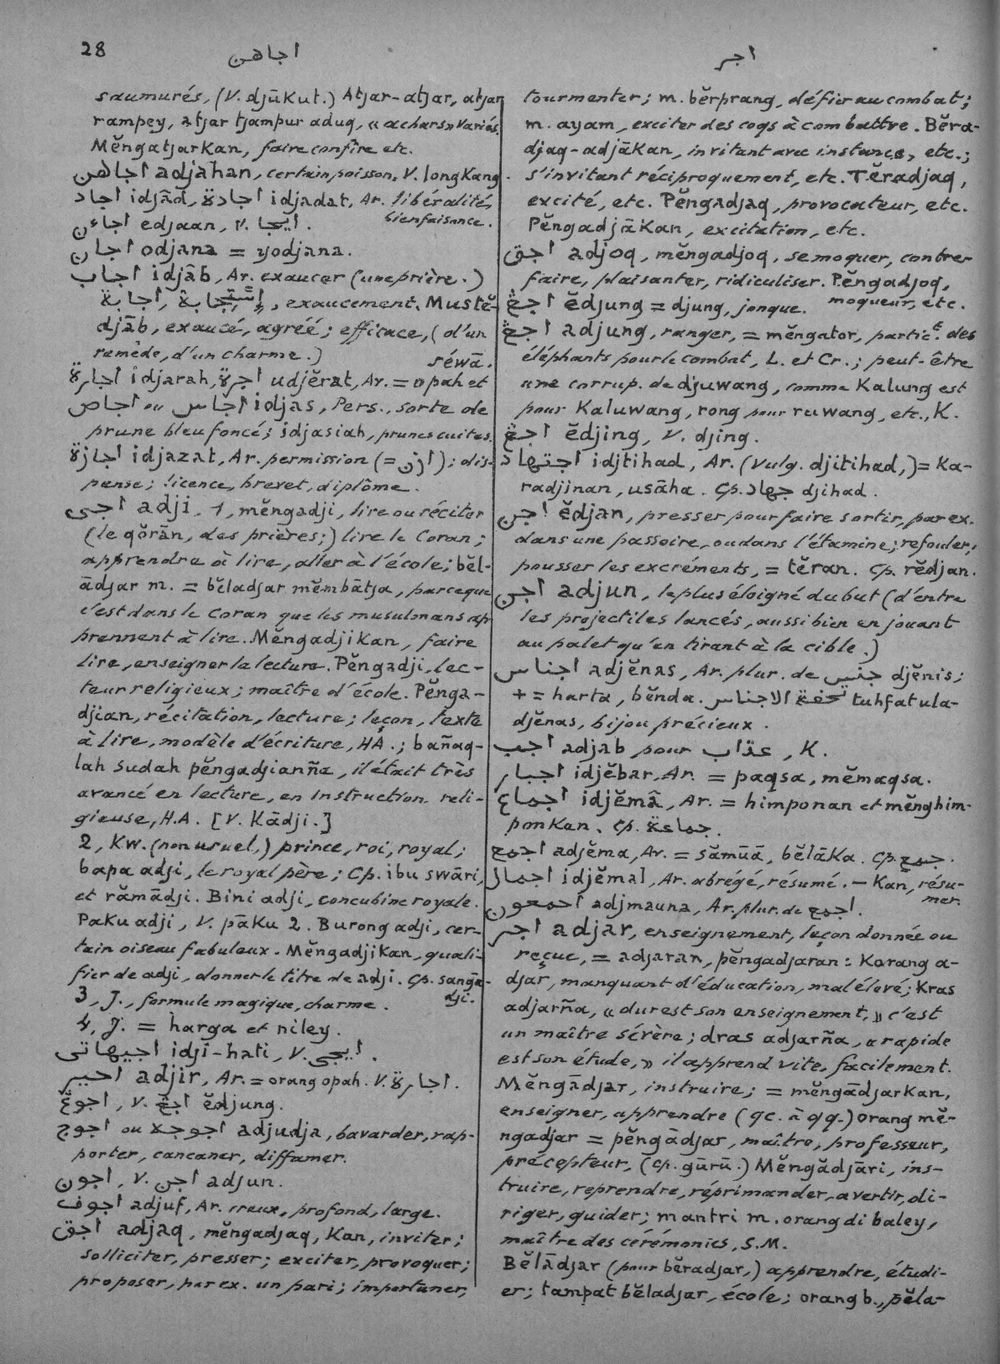 28
اجاهن
اجر
saumurés, (V. djūkut.) Atjar-atjar, atjar
rampey, atjar tjampur aduq, « achars » variés.
Mĕngatjarkan, faire confire etc.
اجاهن adjahan, certain poisson, V. longkang.
اجاد idjād, اجادة idjadat, Ar. libéralité,
bienfaisance.
اجاءن edjaan, V. ايجا.
اجان odjana = yodjana.
اجاب idjāb, Ar. exaucer (une prière.)
اجابة, exaucement. Mustĕ-
djāb, exaucé, agréé; efficace, (d'un
remède, d'un charme.)
séwā.
اجارة idjarah, اجرة udjĕrat, Ar. = opah et
اجاص ou اجاس idjas, Pers., sorte de
prune bleu foncé; idjasiah, prunes cuites.
اجازة idjazat, Ar. permission (= اذن); dis-
pense; licence, brevet, diplôme.
اجى adji, 1, mĕngadji, lire ou réciter
(le qŏrān, des prières;) lire le Coran;
apprendre à lire, aller à l'école; bĕl-
ādjar m. = bĕladjar mĕmbātja, parceque
c'est dans le Coran que les musulmans ap-
prennent à lire. Mĕngadjikan, faire
lire, enseigner la lecture. Pĕngadji, lec-
teur religieux; maître d'école. Pĕnga-
djian, récitation, lecture; leçon, texte
à lire, modèle d'écriture, HA.; bañaq-
lah sudah pĕngadjianña, il était très
avancé en lecture, en instruction reli-
gieuse, H.A. [V. Kādji.]
2, Kw. (non usuel,) prince, roi, royal;
bapa adji, le royal père; Cp. ibu swāri,
et rāmādji. Bini adji, concubine royale.
Paku adji, V. pāku 2. Burong adji, cer-
tain oiseau fabuleux. Mĕngadjikan, quali-
fier de adji, donner le titre de adji. Cp. sangā-
dji.
3, J., formule magique, charme.
4, J. = harga et niley.
اجيهاتى idji-hati, V. ايجى.
اجير adjir, Ar. = orang opah. V. اجارة.
اجوڠ, V. اجڠ ĕdjung.
اجوج ou اجوجا adjudja, bavarder, rap-
porter, cancaner, diffamer.
اجون, V. اجن adjun.
اجوف adjuf, Ar. creux, profond, large.
اجق adjaq, mĕngadjaq, Kan, inviter;
solliciter, presser; exciter, provoquer;
proposer, par ex. un pari; importuner,
tourmenter; m. bĕrprang, défier au combat;
m. ayam, exciter des coqs à combattre. Bĕra-
djaq-adjākan, invitant avec instance, etc.;
s'invitant réciproquement, etc. Tĕradjaq,
excité, etc. Pĕngadjaq, provocateur, etc.
Pĕngadjākan, excitation, etc.
اجق adjoq, mĕngadjoq, se moquer, contre-
faire, plaisanter, ridiculiser. Pĕngadjoq,
moqueur, etc.
اجڠ ĕdjung = djung, jonque.
اجڠ adjung, ranger, = mĕngator, partice des
éléphants pour le combat, L. et Cr.; peut-être
une corrup. de djuwang, comme Kalung est
pour Kaluwang, rong pour ruwang, etc., K.
اجڠ ĕdjing, V. djing.
اجتهاد idjtihad, Ar. (vulg. djitihad,) = Ka-
radjinan, usāha. Cp. جهاد djihad.
اجن ĕdjan, presser pour faire sortir, par ex.
dans une passoire, ou dans l'étamine; refouler,
pousser les excréments, = tĕran. Cp. rĕdjan.
اجن adjun, le plus éloigné du but (d'entre
les projectiles lancés, aussi bien en jouant
au palet qu'en tirant à la cible.)
اجناس adjĕnas, Ar. plur. de جنس djĕnis;
+ = harta, bĕnda. تحفة الاجناس tuhfatula-
djĕnas, bijou précieux.
اجب adjab pour عذاب, K.
اجبار idjĕbar, Ar. = paqsa, mĕmaqsa.
اجماع idjĕmâ, Ar. = himponan et mĕnghim-
ponkan. Cp. جماعة.
اجمع adjĕma, Ar. = sămūā, bĕlāka. Cp. جمع.
اجمال idjĕmal, Ar. abrégé, résumé. — Kan, résu-
mer.
اجمعون adjmauna, Ar. plur. de اجمع.
اجر adjar, enseignement, leçon donnée ou
reçue, = adjaran, pĕngadjaran: Karang a-
djar, manquant d'éducation, mal élevé; Kras
adjarña, « dur est son enseignement, » c'est
un maître sévère; dras adjarña, « rapide
est son étude, » il apprend vite, facilement.
Mĕngādjar, instruire; = mĕngādjarkan,
enseigner, apprendre (qc. à qq.) orang mĕ-
ngadjar = pĕngādjar, maître, professeur,
précepteur, (cp. gūrū.) Mĕngădjāri, ins-
truire, reprendre, réprimander, avertir, di-
riger, guider; mantri m. orang di baley,
maître des cérémonies, S.M.
Bĕlādjar (pour bĕradjar,) apprendre, étudi-
er; tampat bĕladjar, école; orang b., pĕla-